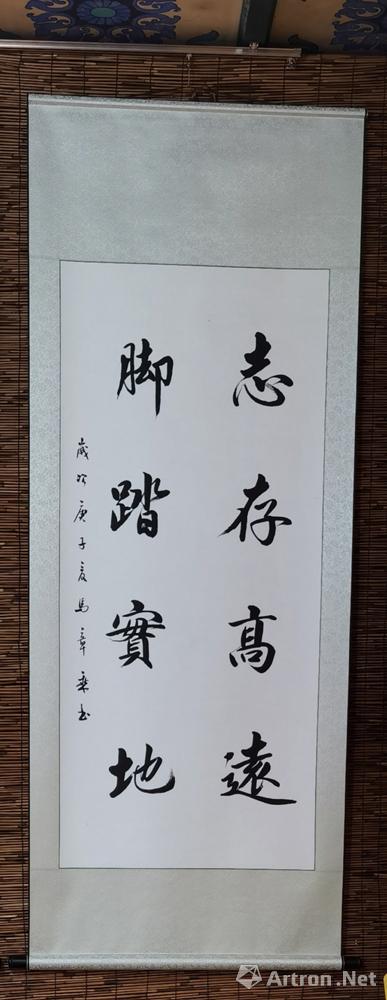 志存高遠
脚踏實地
歲次庚子夏馬章乘书
Artron.Net